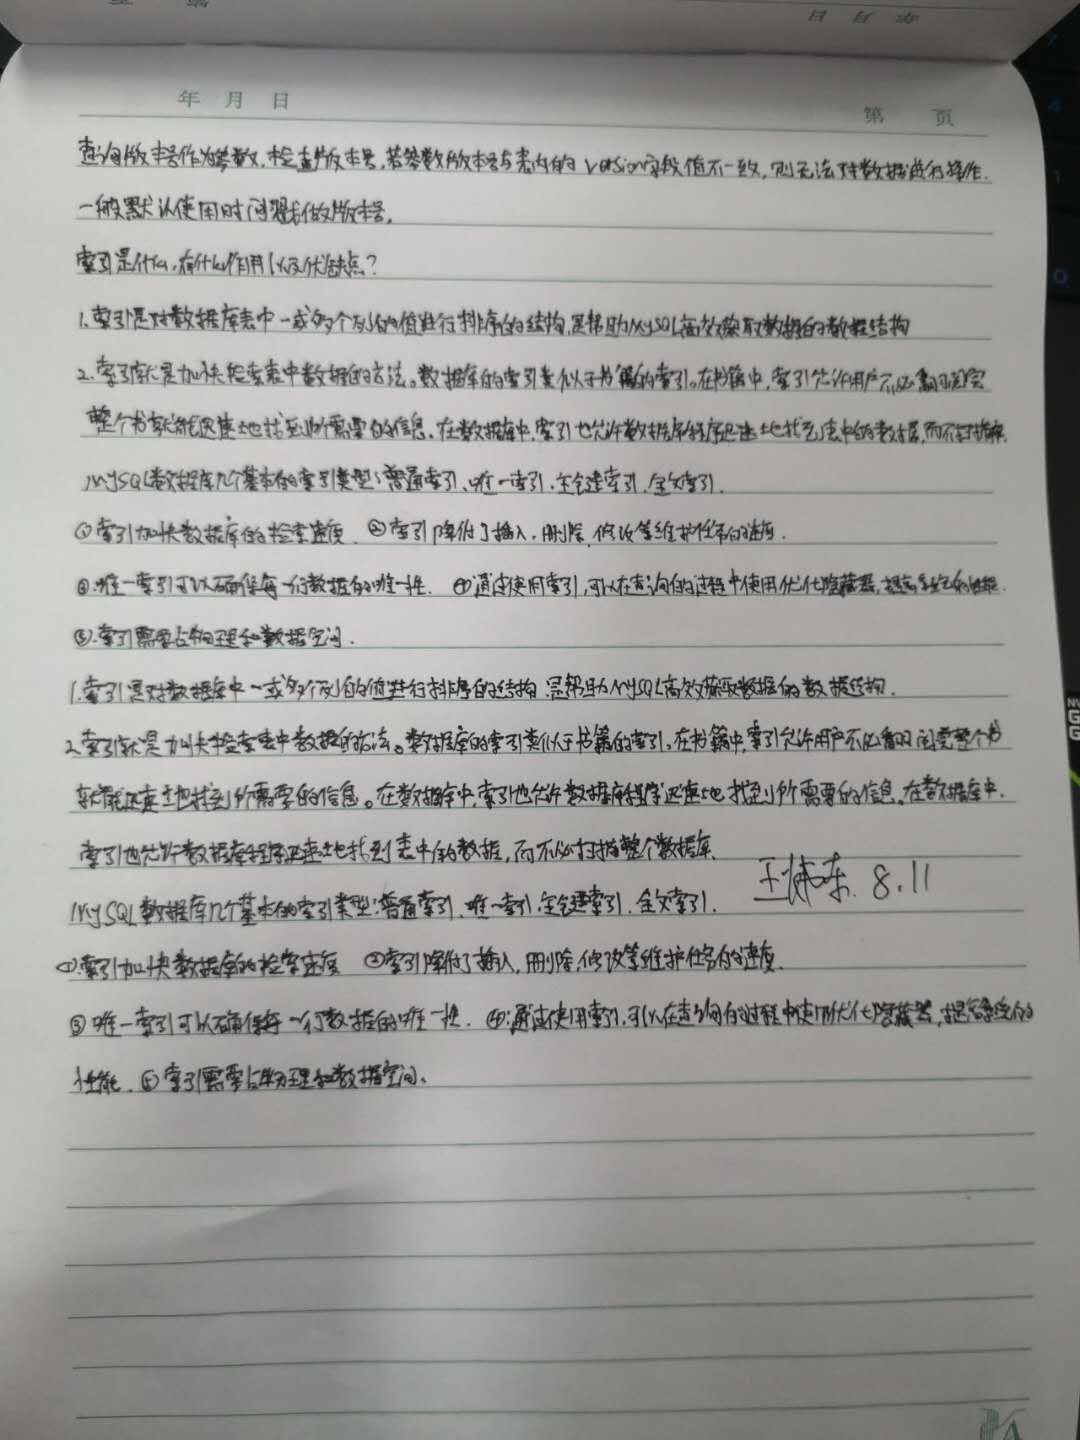 年 月 日
第 页
查询版本号作为参数，检查版本号，若参数版本号与表内的version字段值不一致，则无法对数据进行操作．
一般默认使用时间戳做版本号，
索引是什么，有什么作用以及优缺点？
1．索引是对数据库表中一或多个列的值进行排序的结构，是帮助MySQL高效获取数据的数据结构
2．索引就是加快检索表中数据的方法。数据库的索引类似于书籍的索引。在书籍中，索引允许用户不必翻阅完
整个书就能迅速地找到所需要的信息．在数据库中，索引也允许数据库程序迅速地找到表中的数据，而不必扫描
MySQL数据库几个基本的索引类型：普通索引、唯一索引、主键索引、全文索引．
①索引加快数据库的检索速度 ②索引降低了插入．删除．修改等维护任务的速度．
③．唯一索引可以确保每一行数据的唯一性． ④通过使用索引，可以在查询的过程中使用优化隐藏器，提高系统的性能．
⑤．索引需要占物理和数据空间．
1．索引是对数据库中一或多个列的值进行排序的结构 是帮助MySQL高效获取数据的数据结构．
2．索引就是加快检索表中数据的方法。数据库的索引类似于书籍的索引，在书籍中，索引允许用户不必翻阅完整个书
就能迅速地找到所需要的信息。在数据库中，索引也允许数据库程序迅速地找到所需要的信息．在数据库中．
索引也允许数据库程序迅速地找到表中的数据，而不必扫描整个数据库．
王 东 8.11
MySQL数据库几个基本的索引类型：普通索引．唯一索引．主键索引．全文索引．
①索引加快数据库的检索速度 ②索引降低了插入，删除，修改等维护任务的速度．
③唯一索引可以确保每一行数据的唯一性． ④通过使用索引，可以在查询的过程中使用优化隐藏器，提高系统的
性能．⑤索引需要占物理和数据空间．